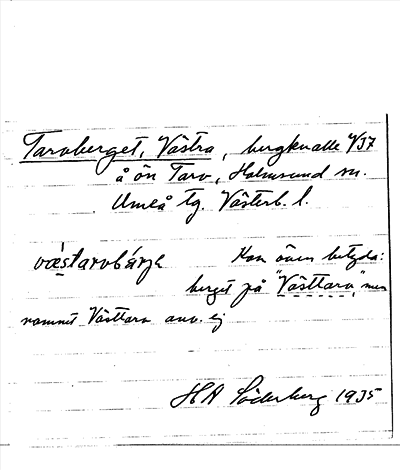 Tarvberget, Västra, bergknalle V37
å ön Tarv, Holmsund sn.
Umeå tg. Västerb. l.
væ̀starvbárjə Kan även betyda:
berget på "Västtarv", men
namnet Västtarv anv. ej
HA Söderberg 1935